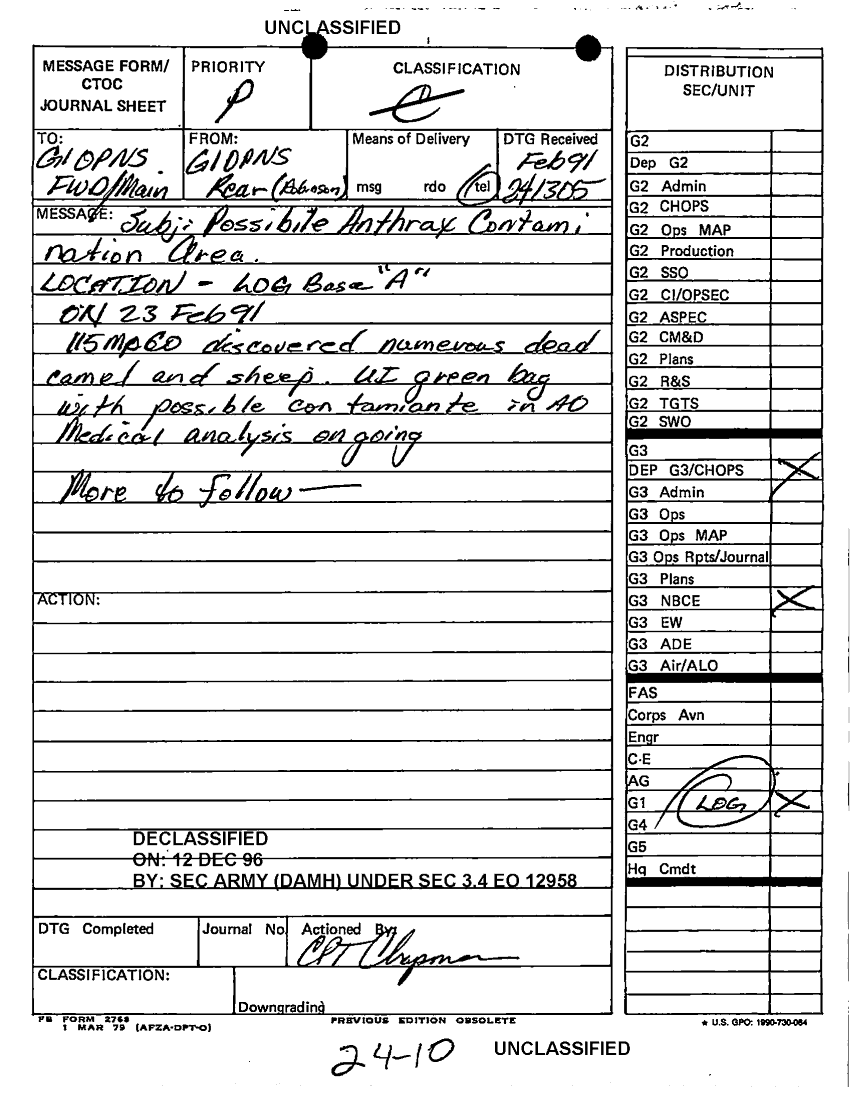 UNCLASSIFIED
MESSAGE FORM/
CTOC
JOURNAL SHEET
PRIORITY
P
CLASSIFICATION
C
TO:
G1OPNS
FWD/Main
FROM:
G1OPNS
Rear (Robinson)
Means of Delivery
msg rdo tel
DTG Received
Feb91
241305
MESSAGE: Subj: Possibile Anthrax Contami
nation Area.
LOCATION - LOG Base "A"
ON 23 Feb91
115MPCO discovered numerous dead
camel and sheep. UI green bag
with possible contamiante in AO
Medical analysis ongoing
More to follow—
ACTION:
DECLASSIFIED
ON: 12 DEC 96
BY: SEC ARMY (DAMH) UNDER SEC 3.4 EO 12958
DTG Completed
Journal No.
Actioned By:
CPT Chapman
CLASSIFICATION:
Downgrading
FB FORM 2768
1 MAR 79 (AFZA-DPT-O)
PREVIOUS EDITION OBSOLETE
DISTRIBUTION
SEC/UNIT
G2
Dep G2
G2 Admin
G2 CHOPS
G2 Ops MAP
G2 Production
G2 SSO
G2 CI/OPSEC
G2 ASPEC
G2 CM&D
G2 Plans
G2 R&S
G2 TGTS
G2 SWO
G3
DEP G3/CHOPS X
G3 Admin
G3 Ops
G3 Ops MAP
G3 Ops Rpts/Journal
G3 Plans
G3 NBCE X
G3 EW
G3 ADE
G3 Air/ALO
FAS
Corps Avn
Engr
C-E
AG
G1 LOG X
G4
G5
Hq Cmdt
★ U.S. GPO: 1990-730-064
24-10
UNCLASSIFIED